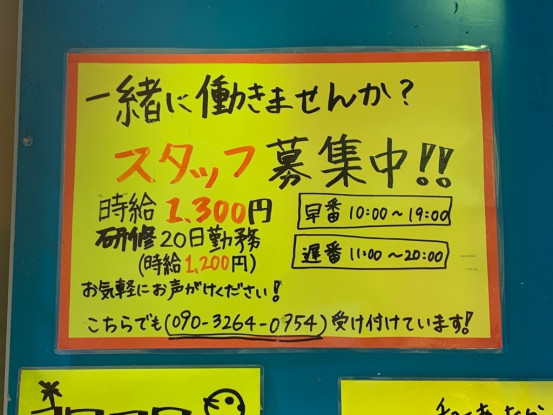 一緒に働きませんか?
スタッフ募集中!!
時給1,300円
研修20日勤務
(時給1,200円)
早番 10:00〜19:00
遅番 11:00〜20:00
お気軽にお声がけください!
こちらでも(090-3264-0754)受け付けています!